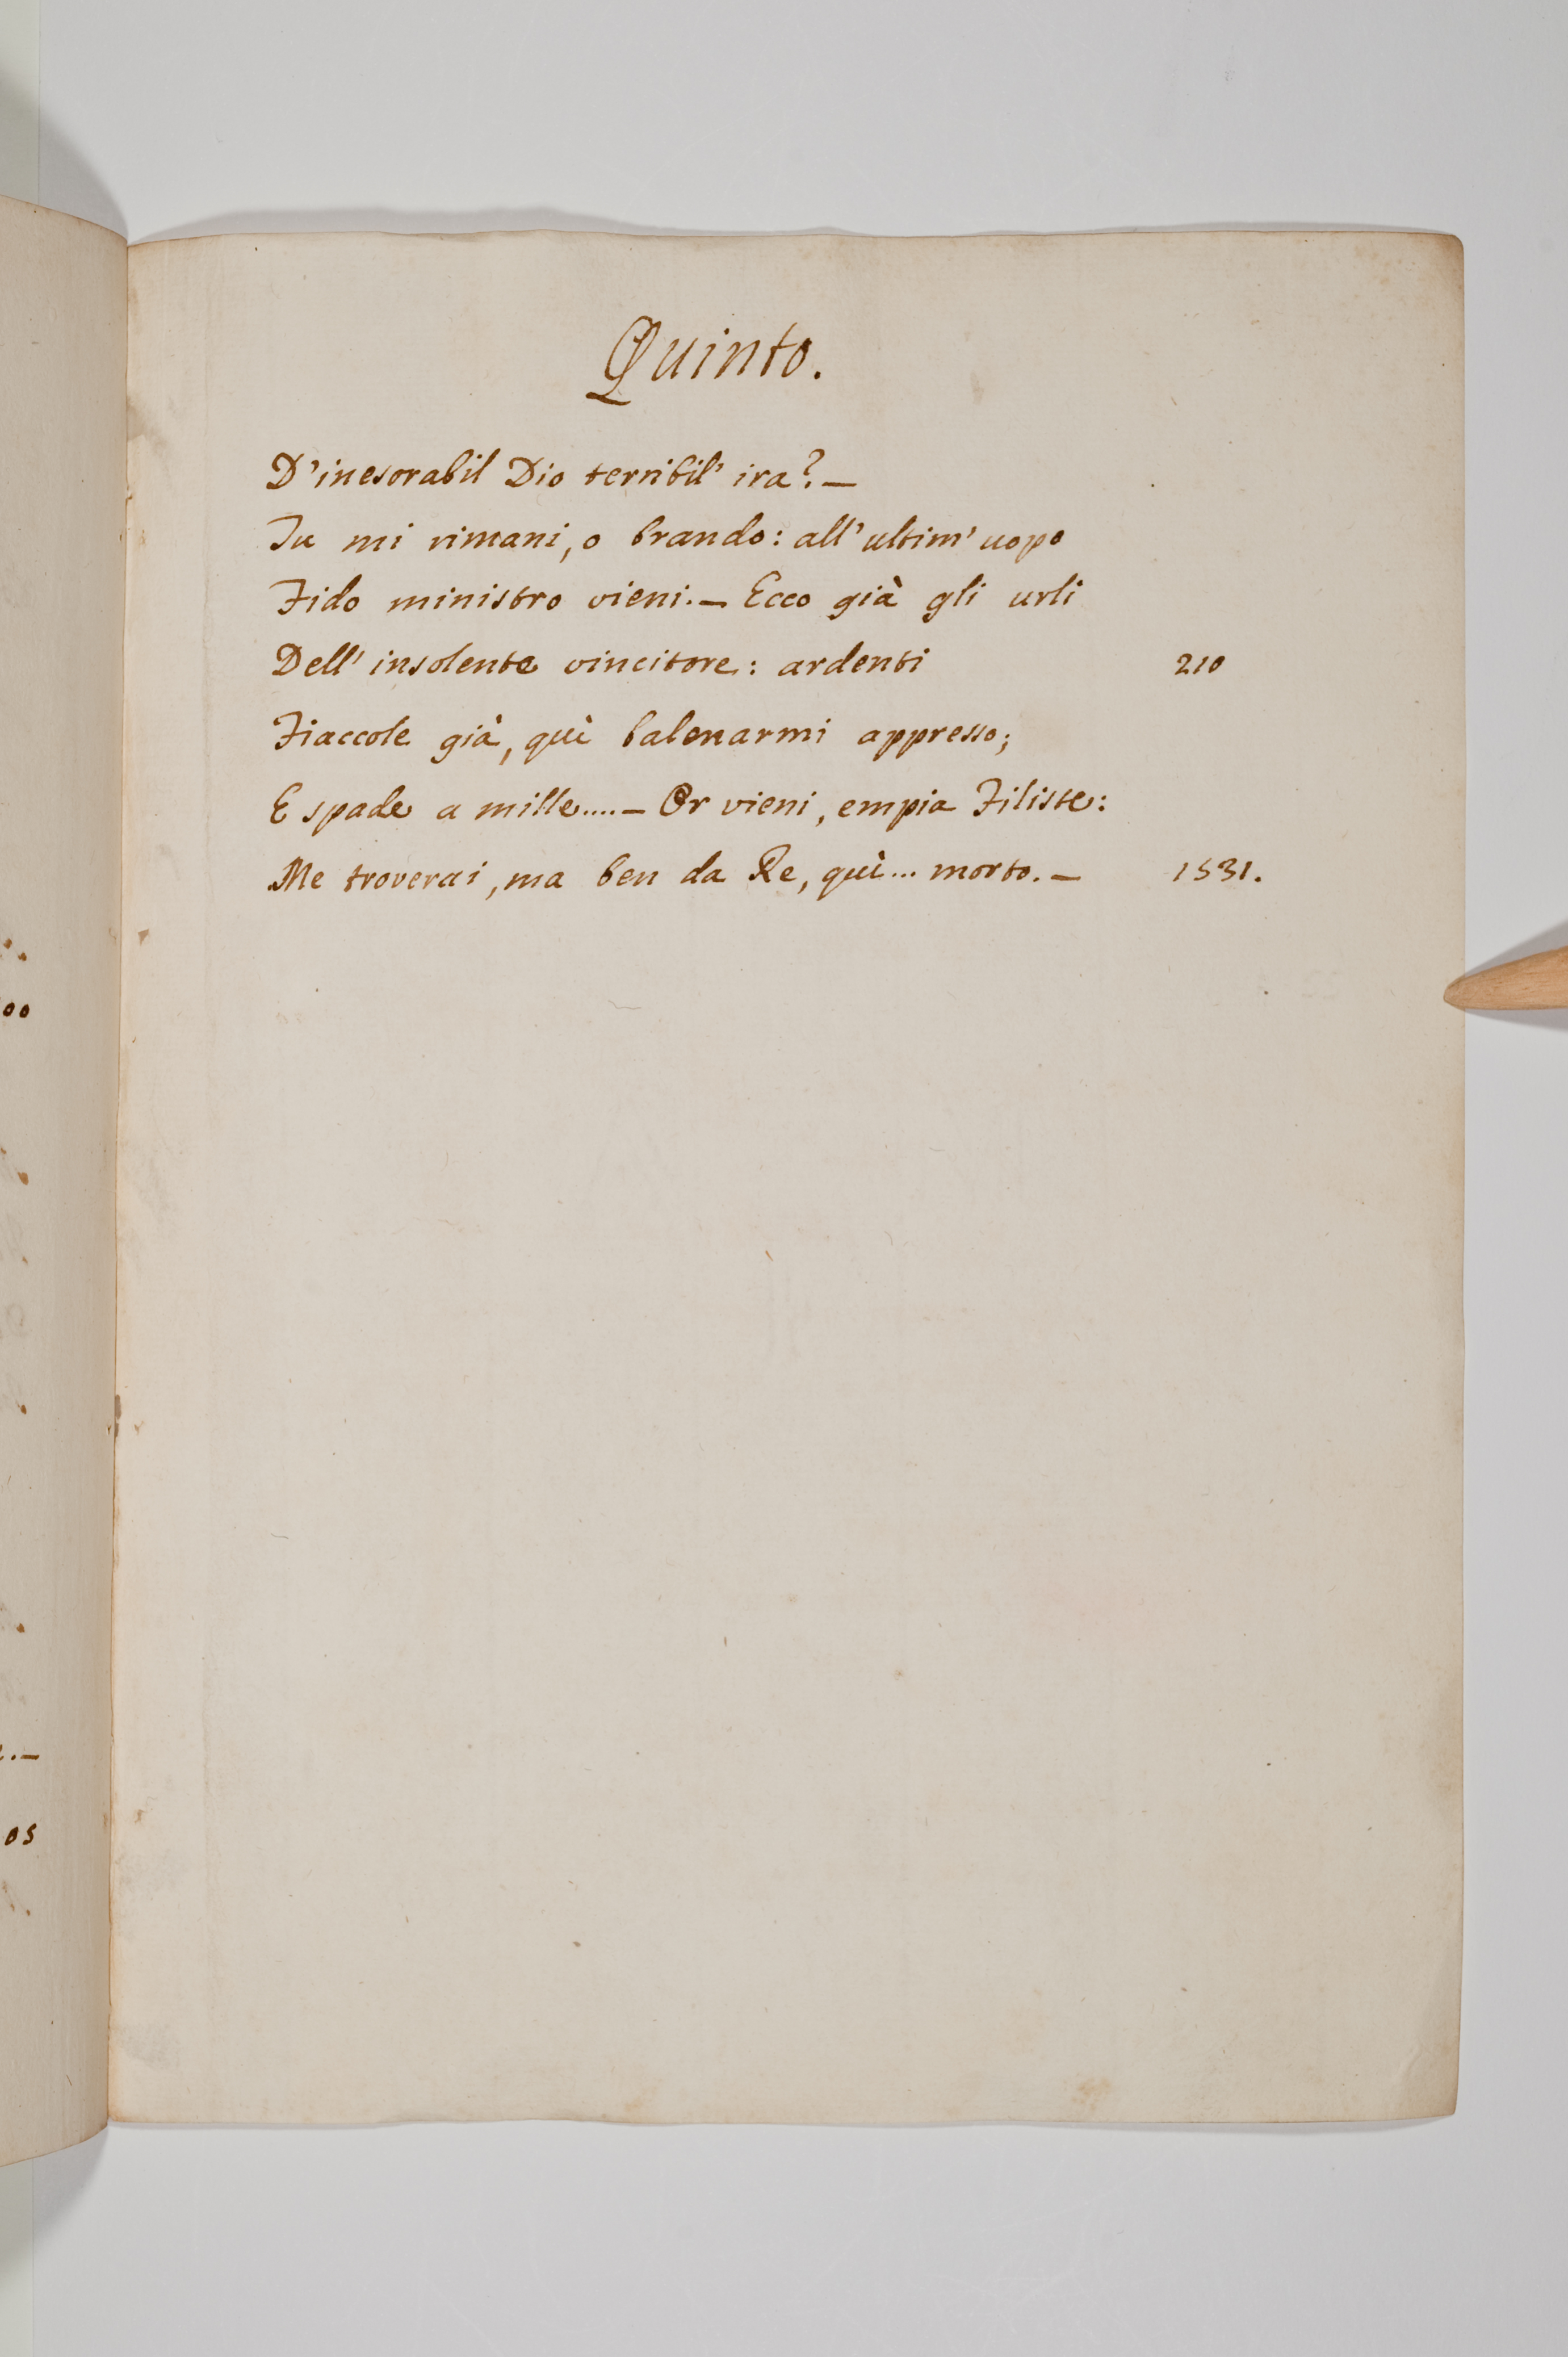 Quinto.
D'inesorabil Dio terribil' ira?—
Tu mi rimani, o brando: all'ultim' uopo
Fido ministro vieni.— Ecco già gli urli
Dell' insolente vincitore: ardenti 210
Fiaccole già, quì balenarmi appresso;
E spade a mille....— Or vieni, empia Filiste:
Me troverai, ma ben da Re, quì... morto.— 1531.
00
.—
05